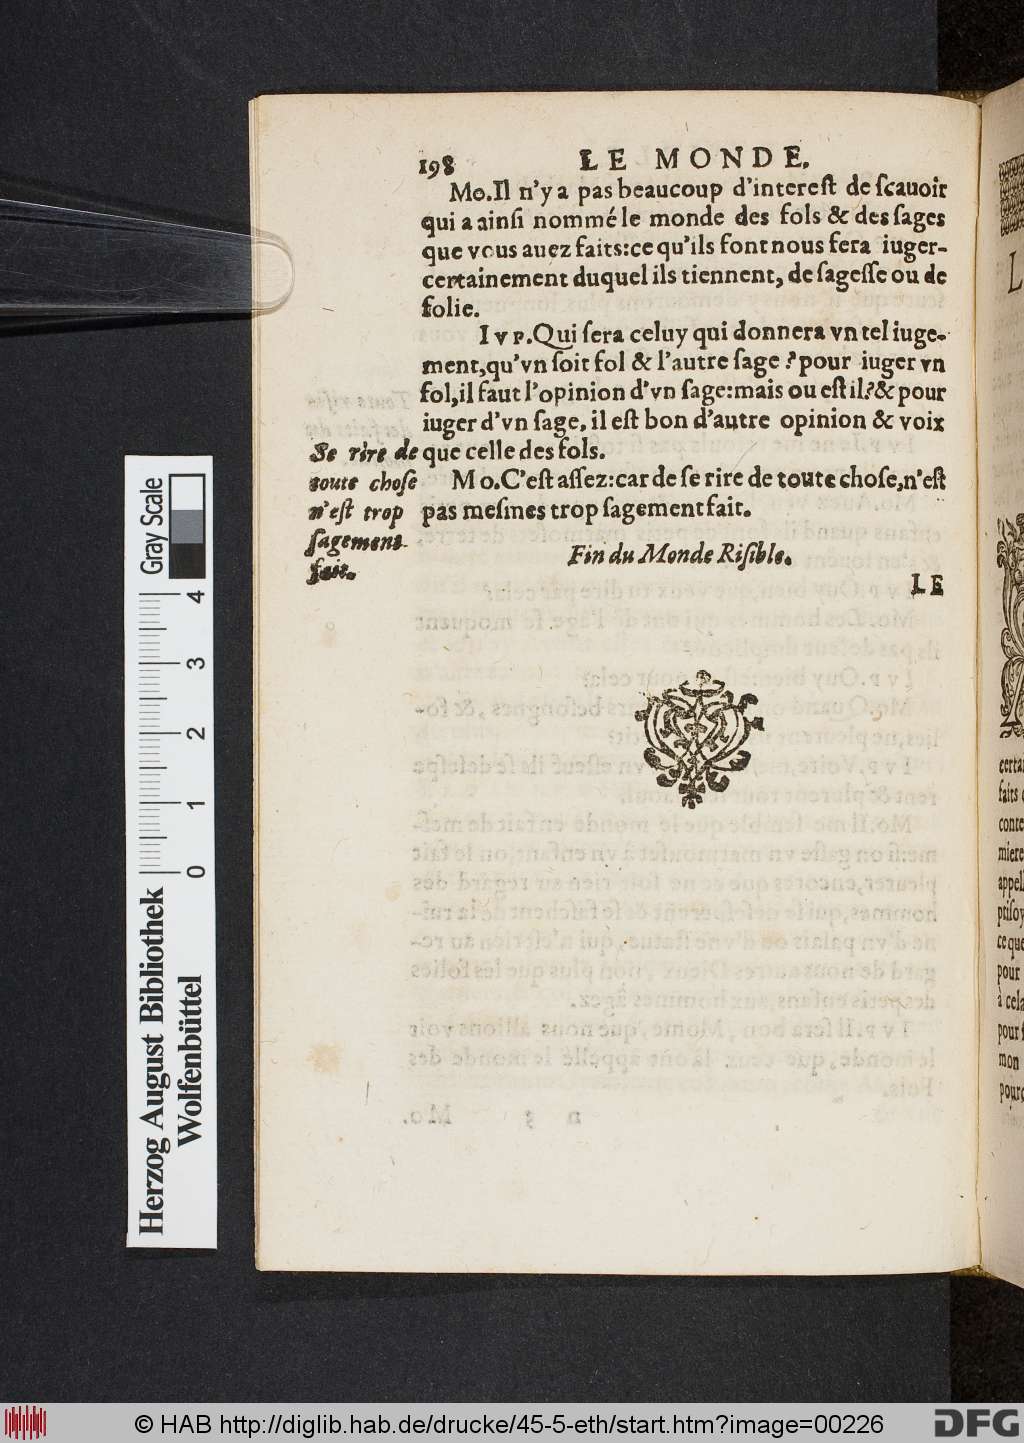 198 LE MONDE.
Mo. Il n'y a pas beaucoup d'interest de sçauoir
qui a ainſi nommé le monde des fols & des ſages
que vous auez faits: ce qu'ils font nous fera iuger-
certainement duquel ils tiennent, de ſageſſe ou de
folie.
Ivp. Qui ſera celuy qui donnera vn tel iuge-
ment, qu'vn ſoit fol & l'autre ſage? pour iuger vn
fol, il faut l'opinion d'vn ſage: mais ou eſt il? & pour
iuger d'vn ſage, il eſt bon d'autre opinion & voix
que celle des fols.
Mo. C'eſt aſſez: car de ſe rire de toute choſe, n'eſt
pas meſmes trop ſagement fait.
Se rire de
toute choſe
n'eſt trop
ſagement
fait.
Fin du Monde Riſible.
LE
Gray Scale
4
3
2
1
0
Herzog August Bibliothek
Wolfenbüttel
L
certai
faits
conte
miere
appel
ptiſoy
ce que
pour
à cela
pour
mon
pourc
© HAB http://diglib.hab.de/drucke/45-5-eth/start.htm?image=00226
DFG